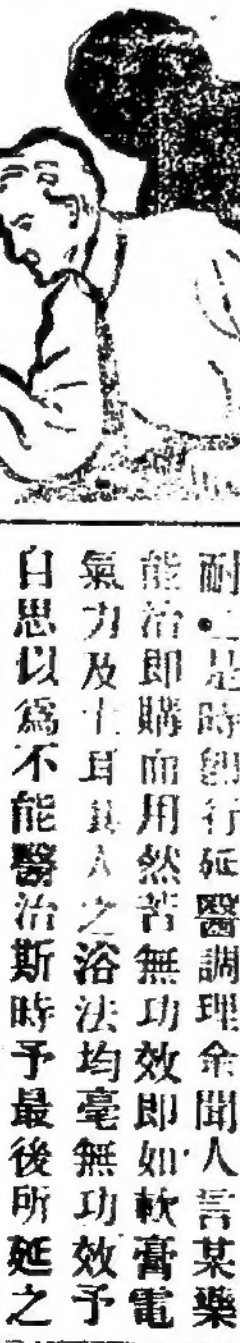 耐是時卽行延醫調理余聞人言某藥
能治即購而用然苦無功效即如軟膏電
氣力及土耳其人之浴法均毫無功效予
自思以爲不能醫治斯時予最後所延之